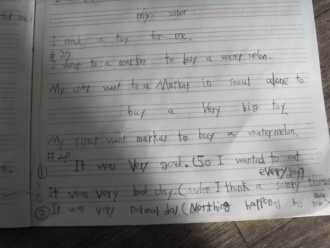 my sister
I made a toy for me.
#27
I went to a market to buy a water melon.
My sister went to a Market in seoul alone to
buy a Very big toy.
My sister went market to buy a watermelon.
#28
① It was Very good. (So I wanted to eat
everyday)
② It was Very bad day. (Why I think a
③ It was very normal day (Notthing happend to me